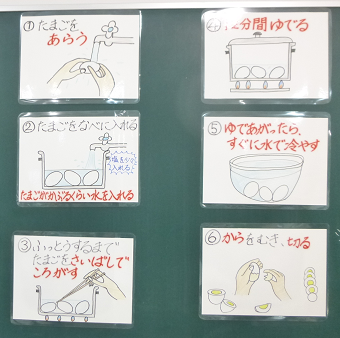 ①たまごを
あらう
②たまごをなべに入れる
塩を少々
入れる
たまごがかぶるくらい水を入れる
③ふっとうするまで
たまごをさいばしで
ころがす
④12分間ゆでる
⑤ゆであがったら、
すぐに水で冷やす
⑥からをむき、切る